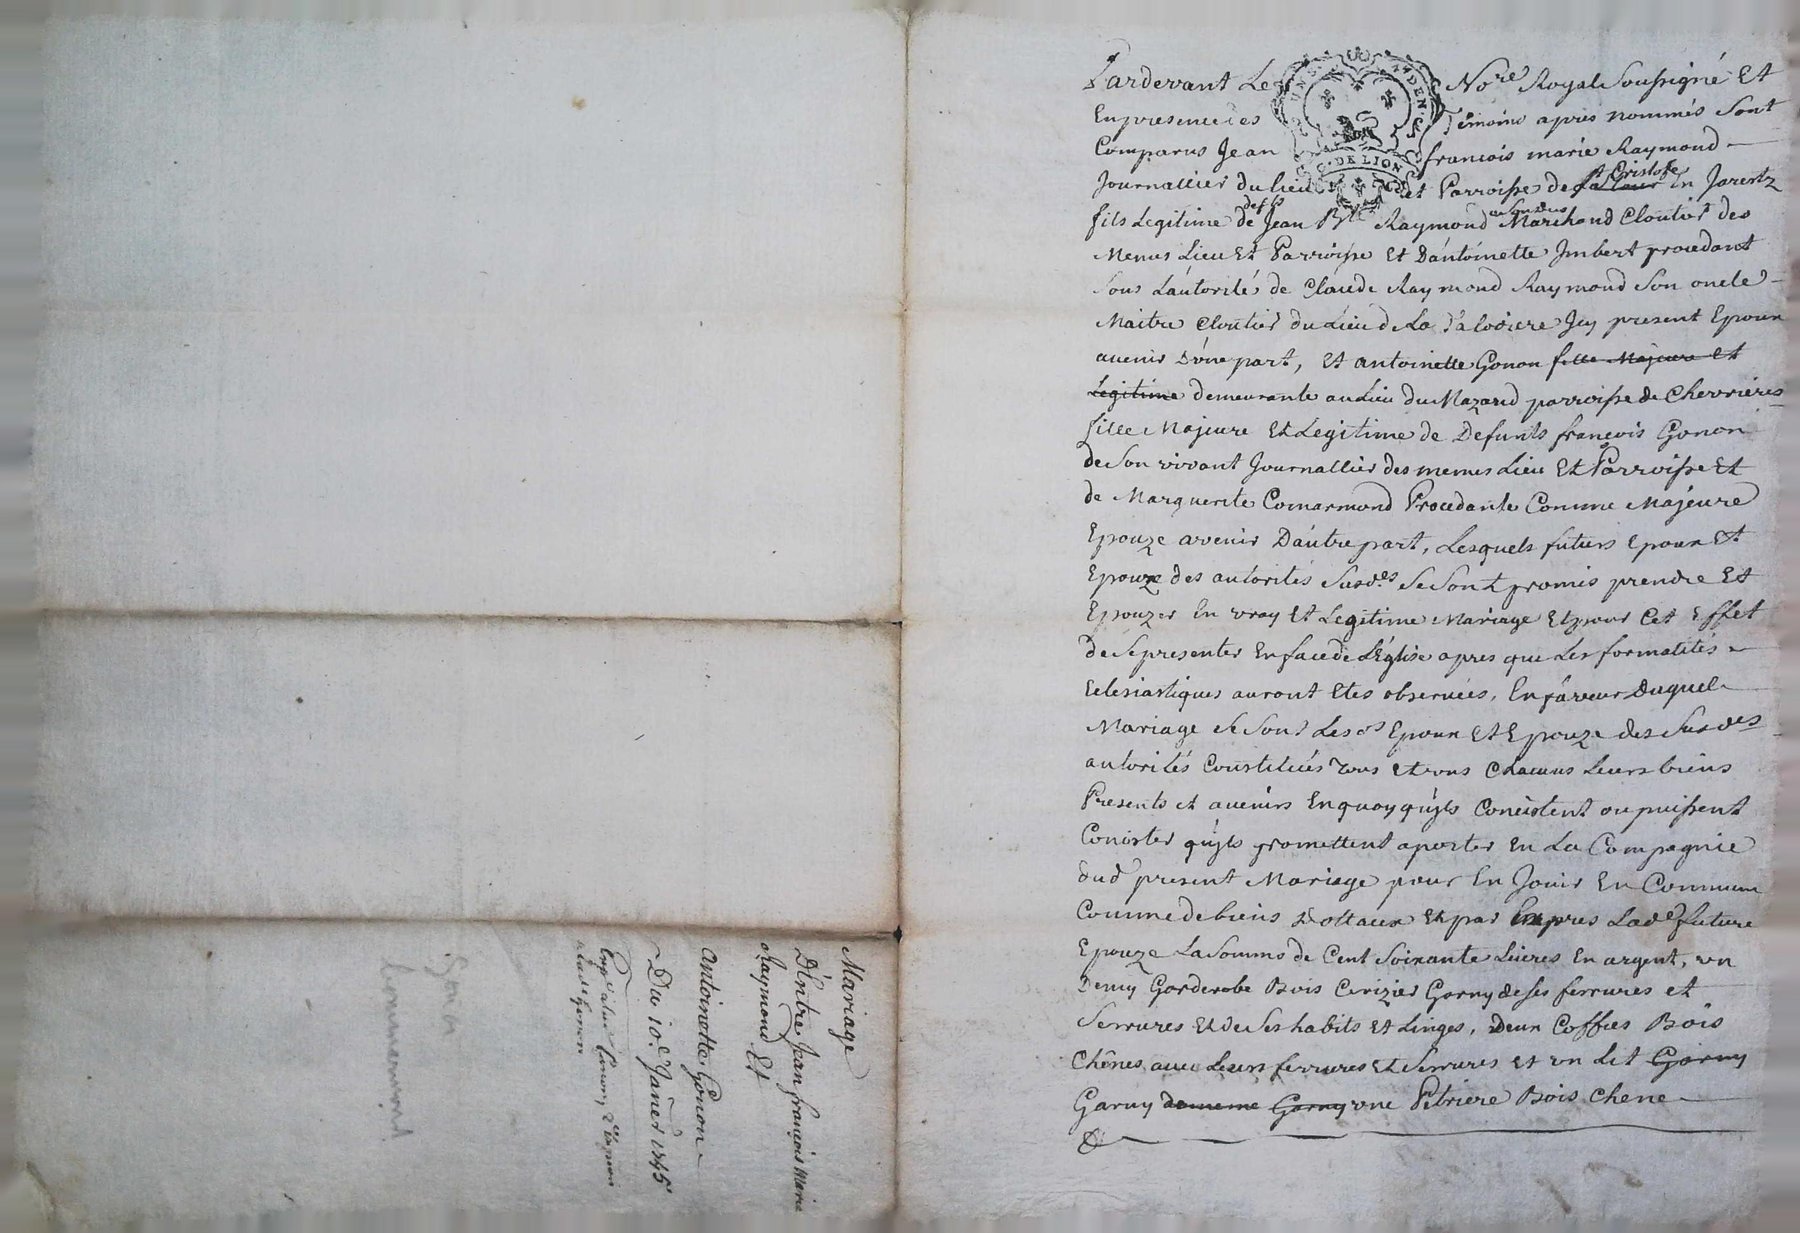 Pardevant Le Nore Royal Soussigné Et
En presence des Temoins apres nommés Sont
Comparus Jean françois marie Raymond
Journallier du lieu et Parroisse de St Cristofe En Jarestz
fils Legitime de deft Jean Bte Raymond Marchand Cloutier des
Memes Lieu Et Parroisse et D'antoinette Imbert procedant
Sous L'autorité de Claude Raymond Raymond Son oncle
Maitre Cloutier du Lieu de La Icy present Epoux
avenir D'une part, Et antoinette Gonon fille Majeure et
Legitime demeurante au Lieu du Mazard parroisse de Chevrieres
fille Majeure Et Legitime de Defunts françois Gonon
de Son vivant Journallier des memes Lieu Et Parroisse Et
de Marguerite Comarmond Procedante Comme Majeure
Epouze avenir D'autre part, Lesquels futurs Epoux Et
Epouze des autorités Susdes Se Sont promis prendre Et
Epouzer En vray Et Legitime Mariage Et pour Cet Effet
de Se presenter En face de L'Eglise apres que Les formatités
Eclesiastiques auront Etes observées, En faveur Duquel
Mariage Se Sont Lesds Epoux Et Epouze des Susdes
autorités Constitués tous et uns Chacuns Leurs biens
Presents et avenirs En quoy qu'yls Consistent ou puissent
Conister qu'yls promettent aporter En La Compagnie
dud present Mariage pour En Jouir En Commun
Comme de biens Dottaux Et par Exprés Lade future
Epouze La Somme de Cent Soixante Livres En argent, un
Demy Garderobe Bois Cerizier Garny de Ses ferrures et
Serrures Et de Ses habits et Linges, Deux Coffres Bois
Chênes avec Leurs ferrures Et Serrures et un Lit Garny
Garny de meme Garny une Petriere Bois Chene
Mariage
D'Entre Jean françois Marie
Raymond Et
antoinette Gonon
Du 10e Janer